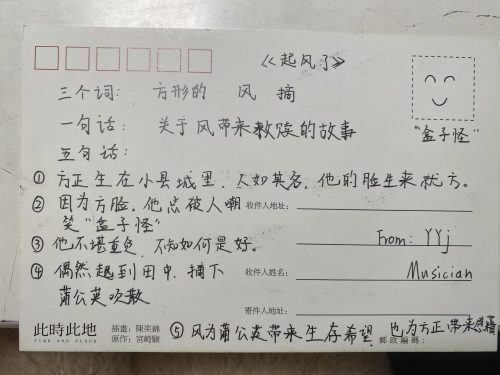 《起风了》
三个词： 方形的 风 摘
一句话： 关于风带来救赎的故事
"盒子怪"
五句话：
① 方正生在小县城里，人如其名，他的脸生来就方。
② 因为方脸，他总被人嘲
笑"盒子怪"
收件人地址：
③ 他不堪重负，不知如何是好。
From: YYj
④ 偶然起到田中，摘下
蒲公英吹散
收件人姓名：
Musician
寄件人地址：
⑤ 风为蒲公英带来生存希望，也为方正带来
此時此地
TIME AND PLACE
插畫：陳奕錦
原作：宮崎駿
郵政編碼：